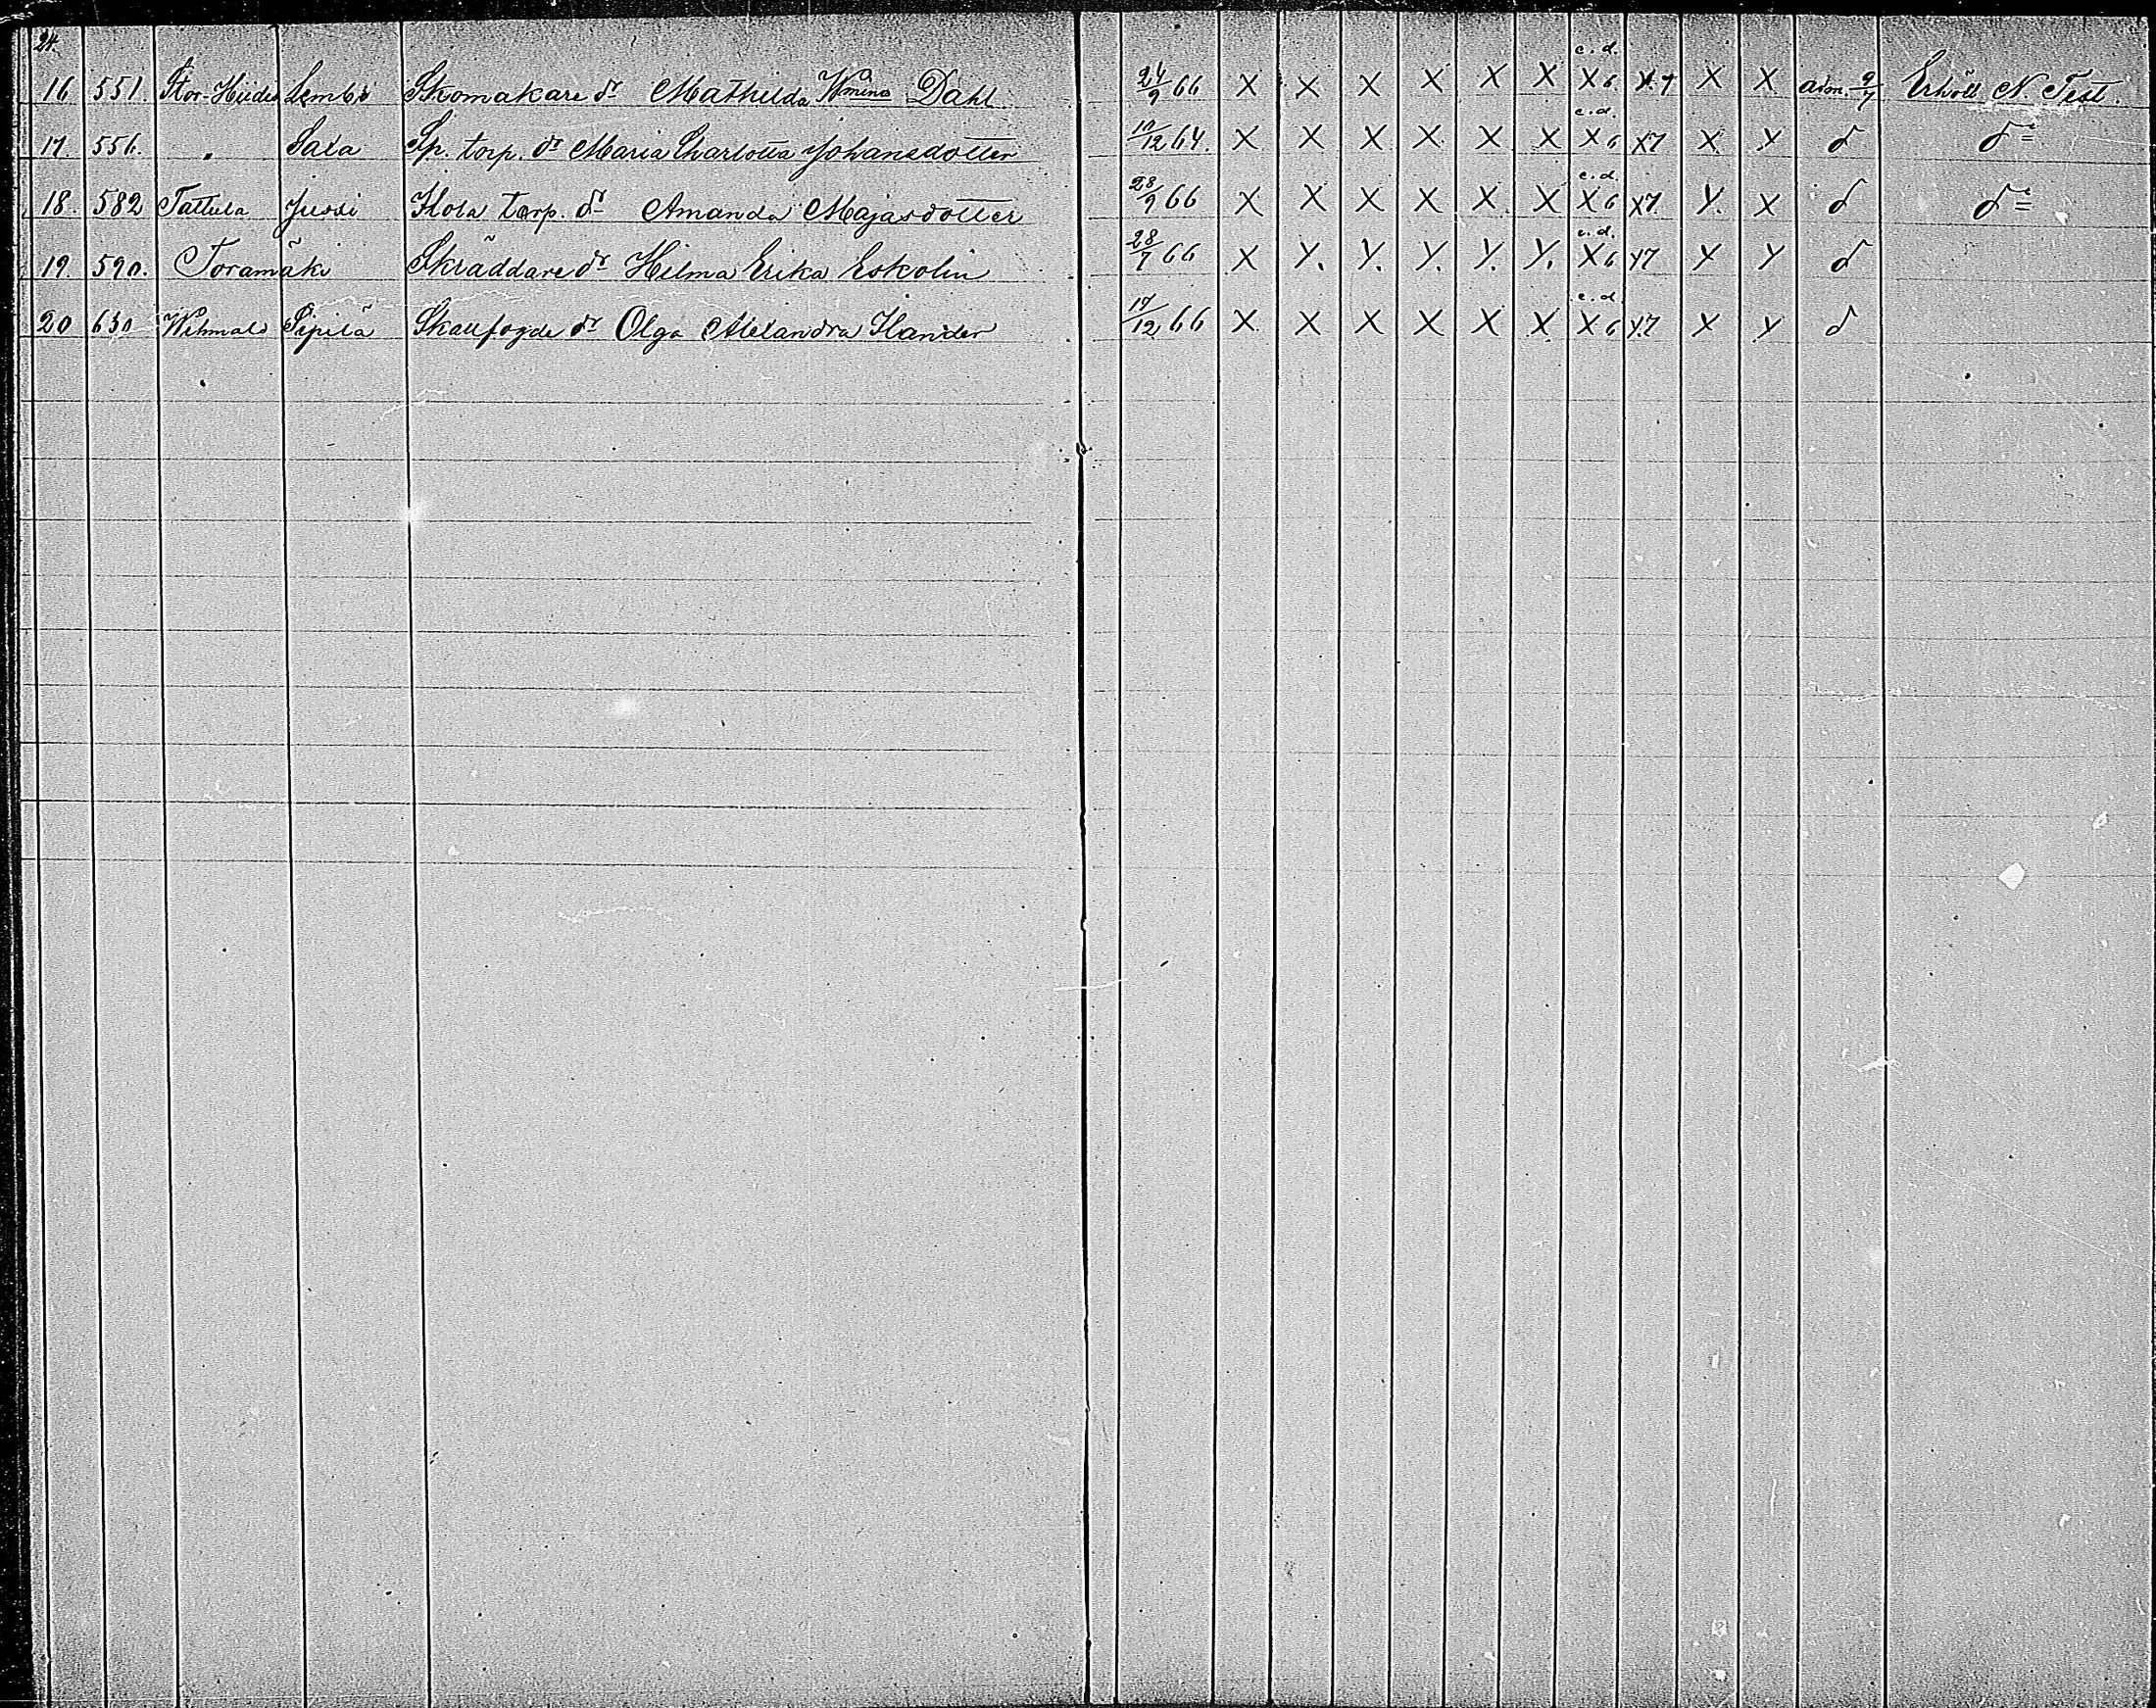 24.
16 551. Stor-Hiidis Lembi Skomakare dr Mathilda Wmina Dahl 24/9 66 X X X X X X c.d. X6 X.7 X X adm. 2/7 Erhöll N. Test.
17. 556. " Saxa Sp. torp. dr Maria Charlotta Johansdotter 10/12 64. X X X X X X c.d. X6 X7 X X d d=
18. 582 Tattula Jussi torp. dr Amanda Majasdotter 28/9 66 X X X X X X c.d. X6 X7. X. X d d=
19. 590. Toramäki Skräddare dr Hilma Erika Eskolin 28/7 66 X X. X. X. X. X. c.d. X6 X7 X X d
20 630 Sipilä dr Olga Alexandra 17/12 66 X. X X X X X. c.d. X6 X.7 X X d